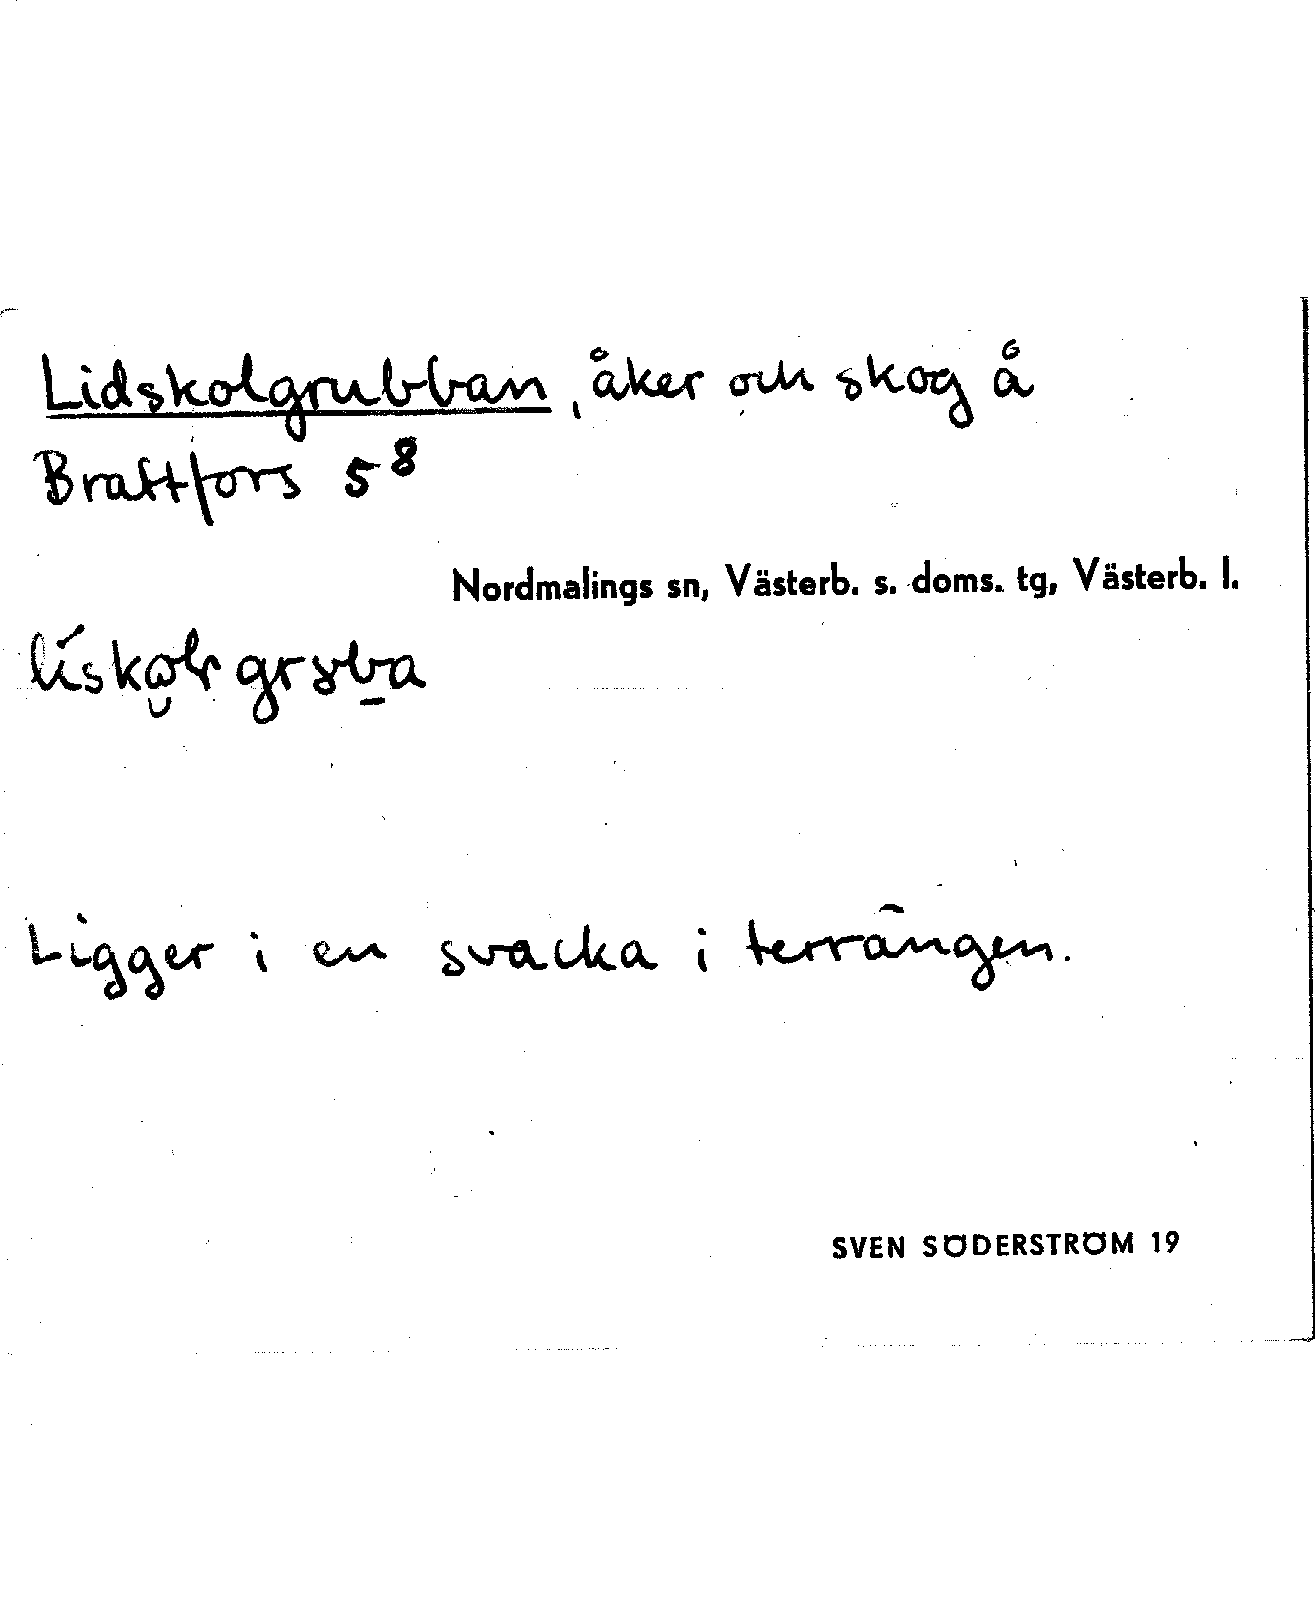 Lidskolgrubban, åker och skog å
Brattfors 5⁸
Nordmalings sn, Västerb. s. doms. tg, Västerb. l.
Ligger i en svacka i terrängen.
SVEN SÖDERSTRÖM 19